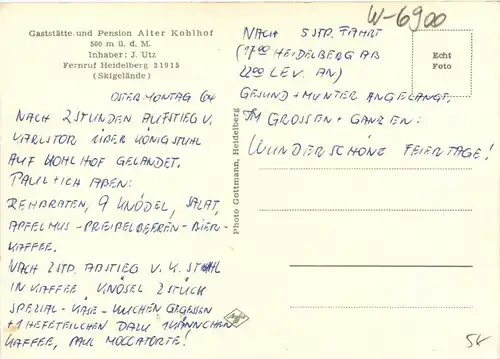 Gaststätte und Pension Alter Kohlhof
500 m ü. d. M.
Inhaber: J. Utz
Fernruf Heidelberg 21915
(Skigelände)
OSTERMONTAG 64
NACH 2 STUNDEN AUFSTIEG V.
KARLSTOR ÜBER KÖNIGSTUHL
AUF KOHLHOF GELANDET.
PAUL + ICH AßEN:
REHBRATEN, 9 KNÖDEL, SALAT,
APFELMUS - PREIßELBEEREN - BIER -
KAFFEE.
NACH 2 STD. ABSTIEG V. K. STUHL
IN KAFFEE KNÖSEL 2 STÜCK
SPEZIAL - KÄSE - KUCHEN GEGESSEN
+ 1 HEFETEILCHEN DAZU 1 KÄNNCHEN
KAFFEE, PAUL MOCCATORTE!
Photo Gottmann, Heidelberg
Agfa
W-6900
NACH 5 STD. FAHRT
(17.00 HEIDELBERG AB
22.00 LEV. AN)
GESUND + MUNTER ANGELANGT.
IM GROSSEN + GANZEN:
WUNDERSCHÖNE FEIERTAGE!
Echt
Foto